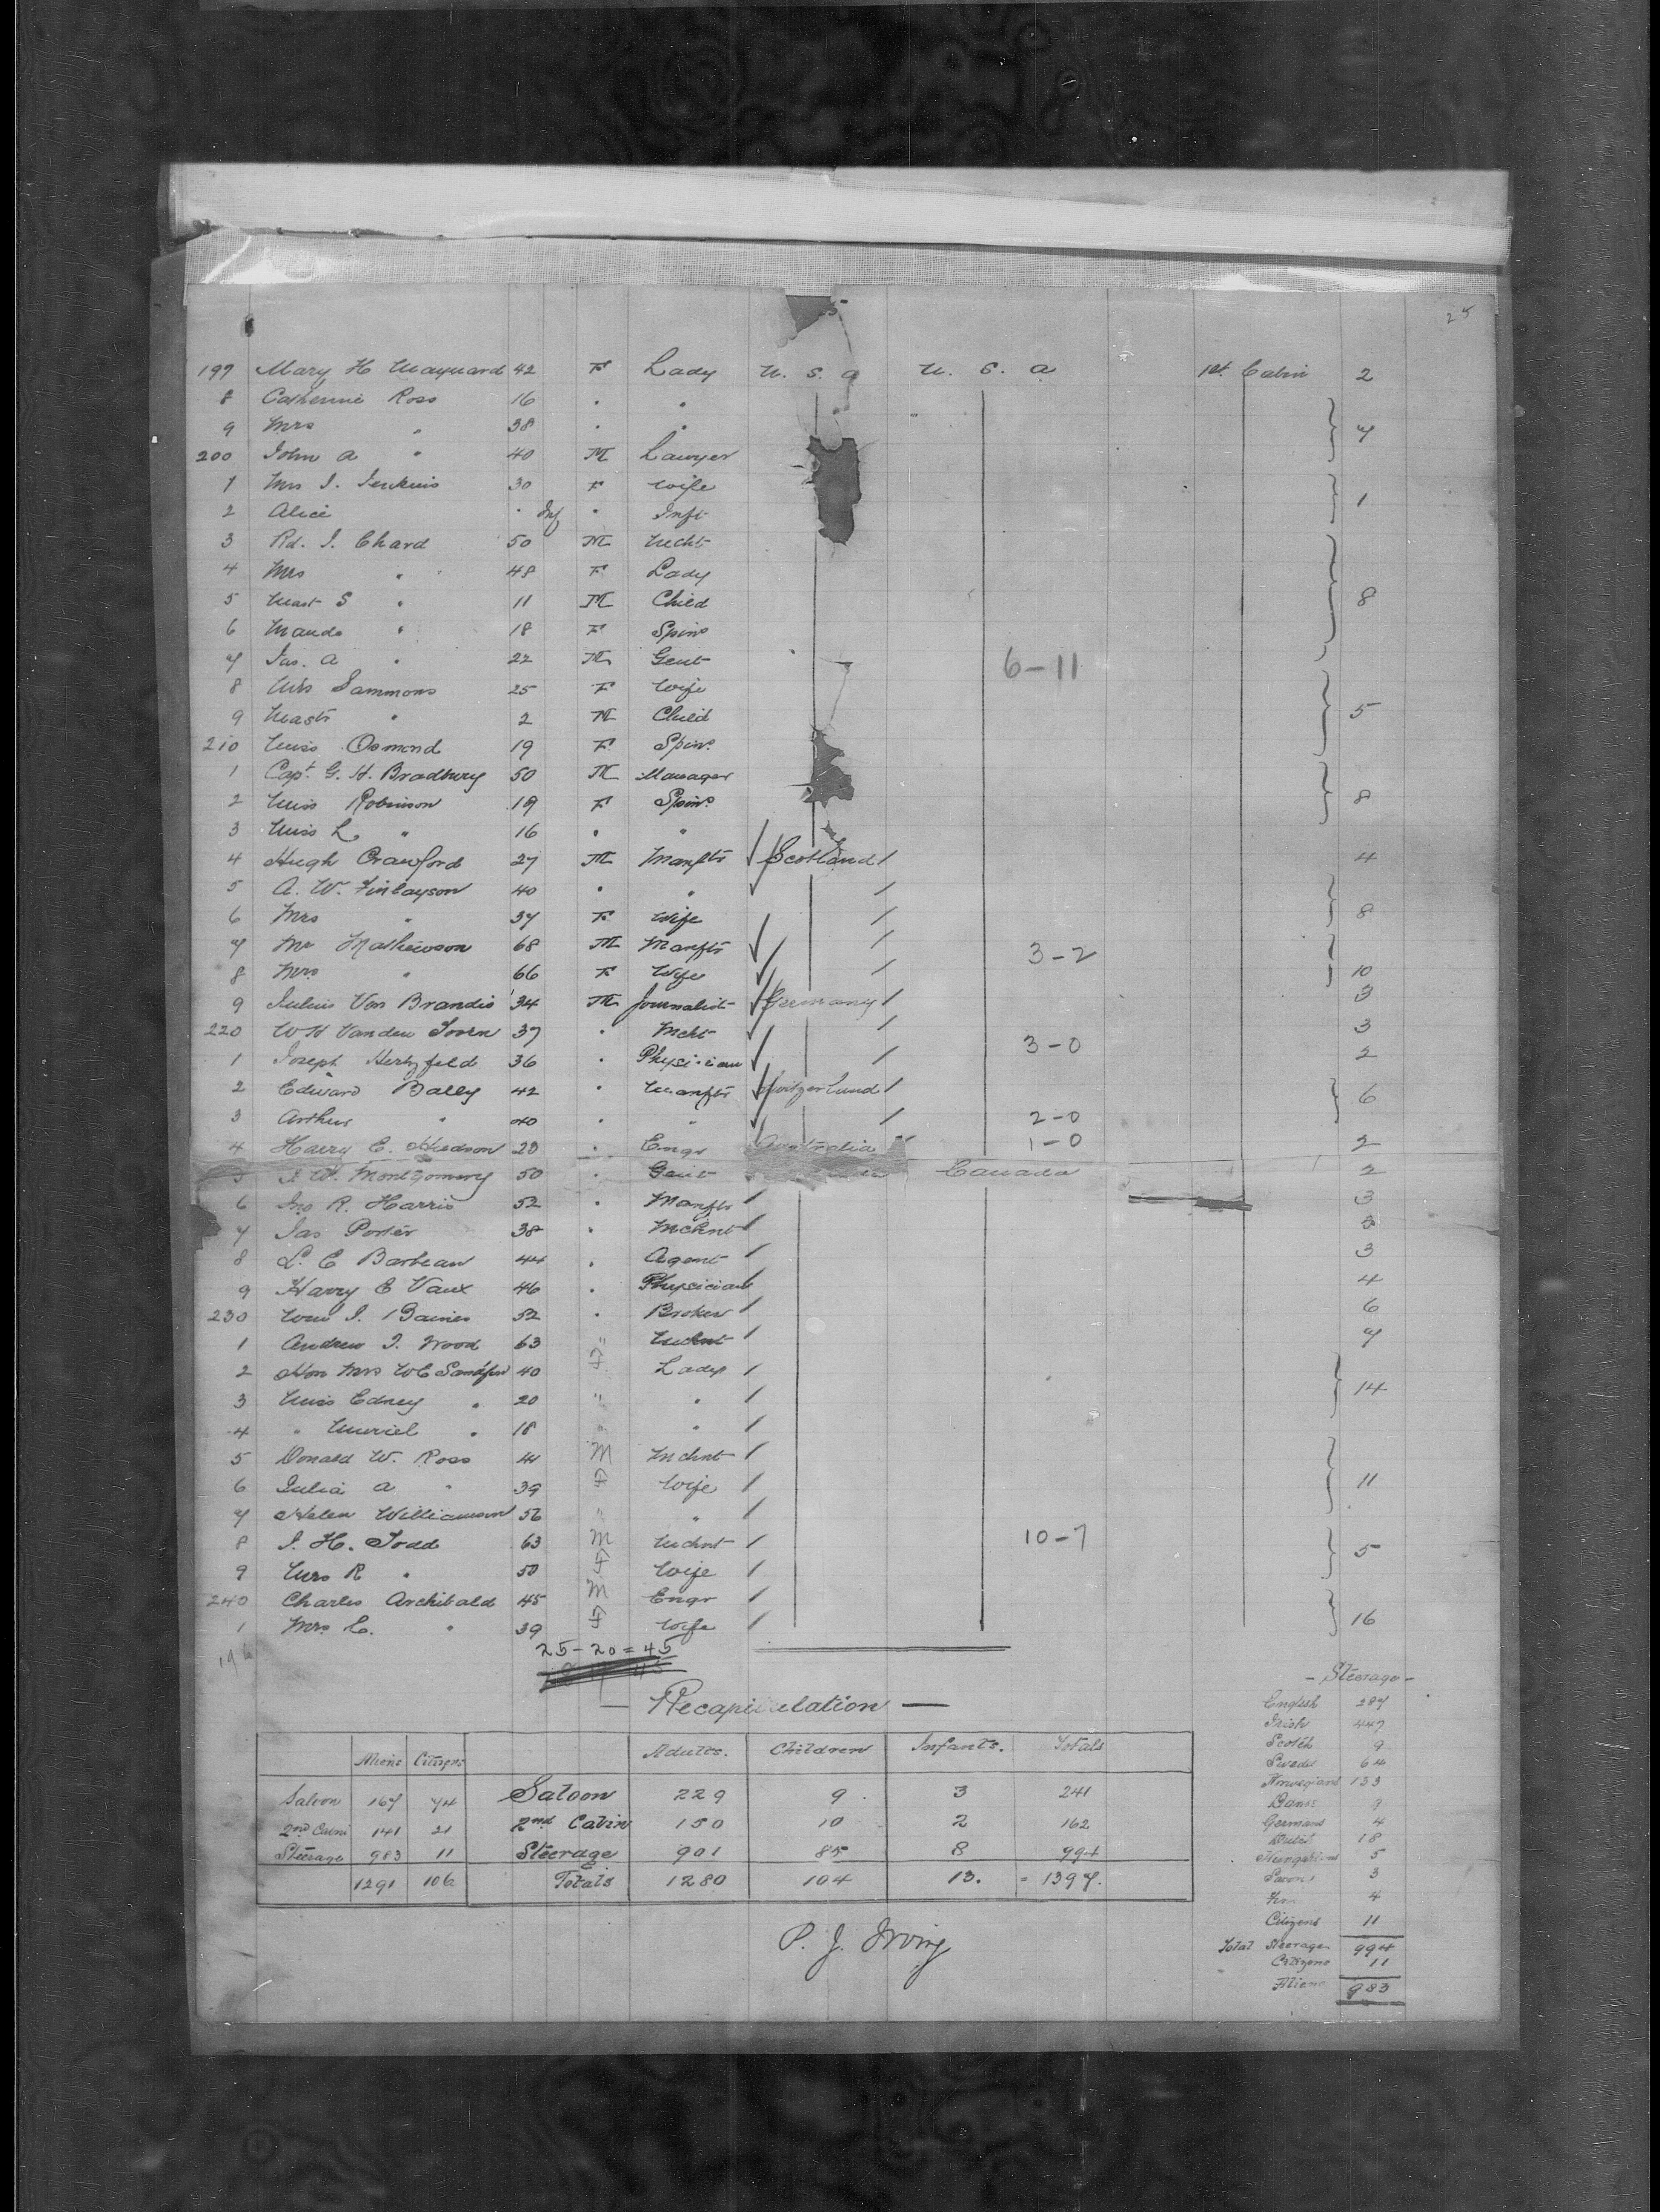 25
197 Mary H Maynard 42 F Lady U. S. A U. S. A 1st Cabin 2
8 Catherine Ross 16 " "
9 Mrs " 38 " " 7
200 John A " 40 M Lawyer
1 Mrs J. Jenkins 30 F Wife
2 Alice " Inf " Inft 1
3 Rd. J. Chard 50 M Mcht
4 Mrs " 48 F Lady
5 Mast S " 11 M Child 8
6 Maude " 18 F Spinr
7 Jas. A " 22 M Gent 6-11
8 Mrs Sammons 25 F Wife
9 Mastr " 2 M Child 5
210 Miss Osmond 19 F Spinr
1 Capt G. H. Bradbury 50 M Manager
2 Miss Robinson 19 F Spinr 8
3 Miss L " 16 " "
4 Hugh Crawford 27 M Manftr Scotland 4
5 A. W. Finlayson 40 " "
6 Mrs " 37 F Wife 8
7 Mr Mathewson 68 M Manftr 3-2
8 Mrs " 66 F Wife 10
9 Julius Von Brandis 34 M Journalist Germany 3
220 W H Vanden 37 " Mcht 3
1 Joseph Hertzfeld 36 " Physician 3-0 2
2 Edward Bally 42 " Manftr Switzerland 6
3 Arthur " 40 " " 2-0
4 Harry E. Hudson 28 " Engr Australia 1-0 2
5 Montgomery 50 " Gent Canada 2
6 Jno R. Harris 52 " Manftr 3
7 Jas Porter 38 " Mchnt 3
8 L. E Barbeau 44 " Agent 3
9 Harry E Vaux 46 " Physician 4
230 Wm J. Baines 52 " Broker 6
1 Andrew J. Wood 63 " Mchnt 7
2 Hon Mrs W E Sandford 40 F Lady
3 Miss Edney " 20 " " 14
4 " Muriel " 18 " "
5 Donald W. Ross 41 M Mchnt
6 Julia A " 39 F Wife 11
7 Helen Williamson 56 " "
8 J. H. Todd 63 M Mchnt 10-7
9 Mrs R " 50 F Wife 5
240 Charles Archibald 45 M Engr
1 Mrs C. " 39 F Wife 16
196
25-20=45
— Recapitulation —
Aliens Citizens Adults. Children Infants. Totals
Saloon 167 74 Saloon 229 9 3 241
2nd Cabin 141 21 2nd Cabin 150 10 2 162
Steerage 983 11 Steerage 901 85 8 994
1291 106 Totals 1280 104 13. = 1397.
P. J. Irving
- Steerage -
English 287
Irish 447
Scotch 9
Swedes 64
Norwegians 133
Danes 9
Germans 4
Dutch 18
Hungarians 5
3
4
Citizens 11
Total Steerage 994
Citizens 11
Aliens 983